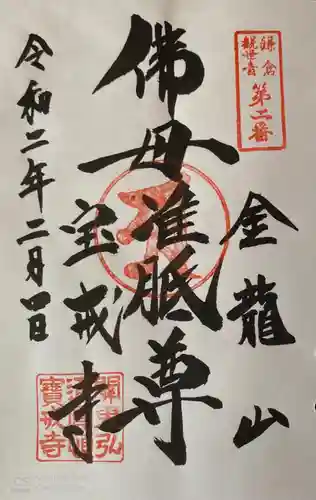 鎌倉
観世音
第二番
金龍山
佛母准胝尊
宝戒寺
令和二年二月四日
寶戒寺